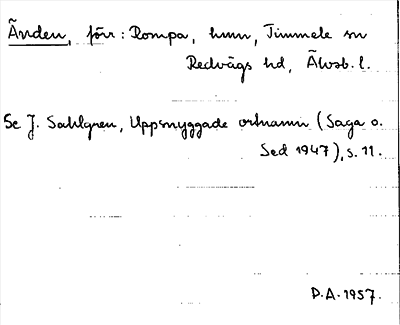 Änden, förr: Rompa, hmn, Timmele sn
Redvägs hd, Älvsb. l.
Se J. Sahlgren, Uppsnyggade ortnamn (Saga o.
Sed 1947), s. 11.
P.A. 1957.